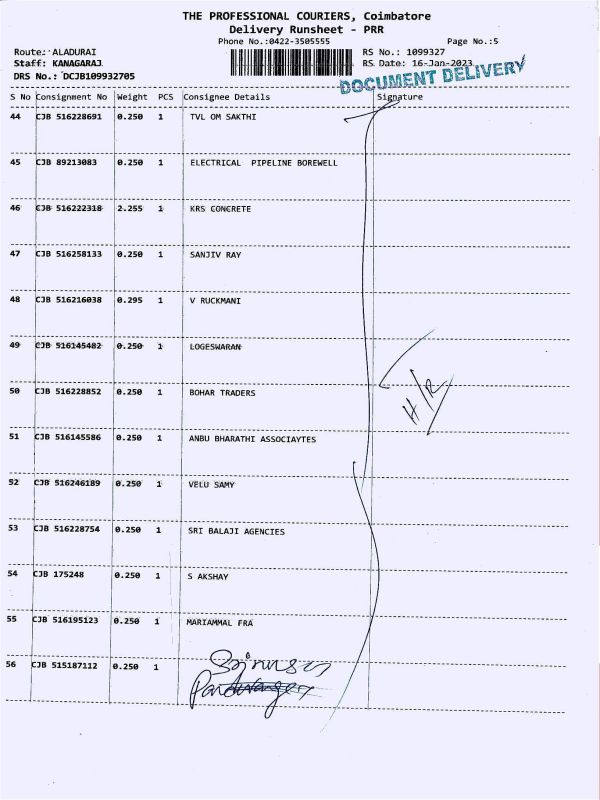 THE PROFESSIONAL COURIERS, Coimbatore
Delivery Runsheet - PRR
Phone No.:0422-3505555 Page No.:5
Route: ALADURAI RS No.: 1099327
Staff: KANAGARAJ RS Date: 16-Jan-2023
DRS No.: DCJB109932705
DOCUMENT DELIVERY
S No Consignment No Weight PCS Consignee Details Signature
44 CJB 516228691 0.250 1 TVL OM SAKTHI
45 CJB 89213083 0.250 1 ELECTRICAL PIPELINE BOREWELL
46 CJB 516222318 2.255 1 KRS CONCRETE
47 CJB 516258133 0.250 1 SANJIV RAY
48 CJB 516216038 0.295 1 V RUCKMANI
49 CJB 516145482 0.250 1 LOGESWARAN
H/R
50 CJB 516228852 0.250 1 BOHAR TRADERS
51 CJB 516145586 0.250 1 ANBU BHARATHI ASSOCIAYTES
52 CJB 516246189 0.250 1 VELU SAMY
53 CJB 516228754 0.250 1 SRI BALAJI AGENCIES
54 CJB 175248 0.250 1 S AKSHAY
55 CJB 516195123 0.250 1 MARIAMMAL FRA
56 CJB 515187112 0.250 1